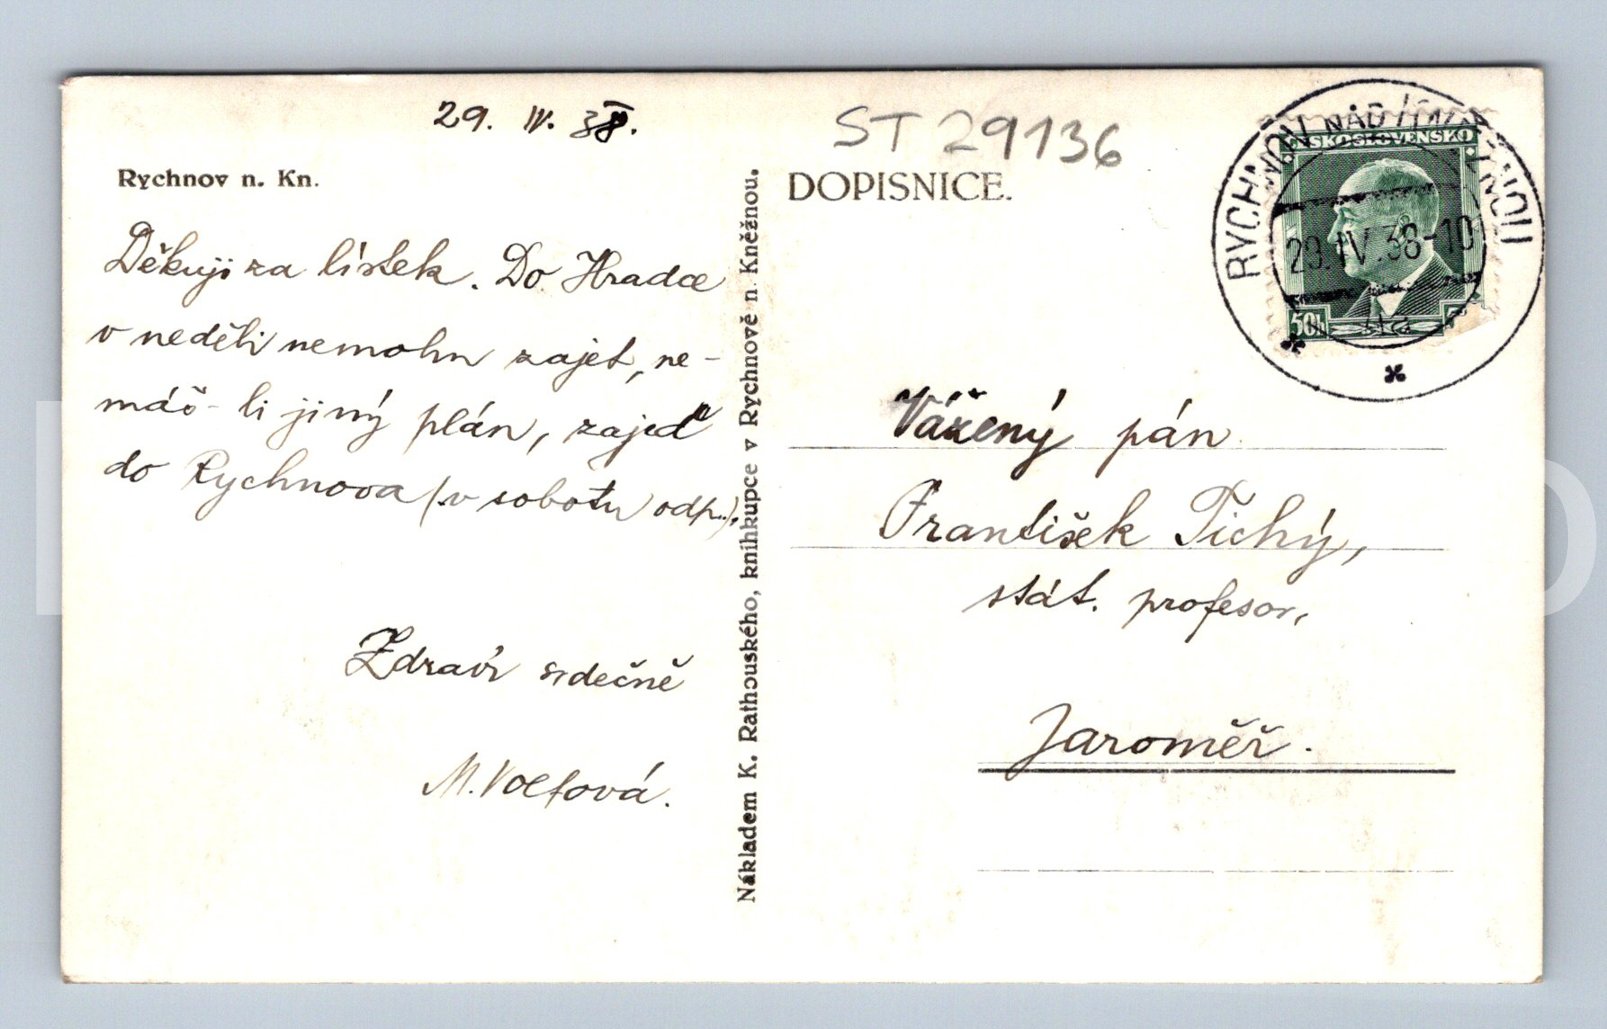 29. IV. 38.
Rychnov n. Kn.
Děkuji za lístek. Do Hradce
v neděli nemohu zajet, ne-
máš-li jiný plán, zajeď
do Rychnova (v sobotu odp.).
Zdraví srdečně
M. Voltová.
Nákladem K. Rathouského, knihkupce v Rychnově n. Kněžnou.
ST 29136
DOPISNICE.
RYCHNOV NAD KNĚŽNOU
29.IV.38-10
ČESKOSLOVENSKO
50h
Vážený pán
František Tichý,
stát. profesor,
Jaroměř.